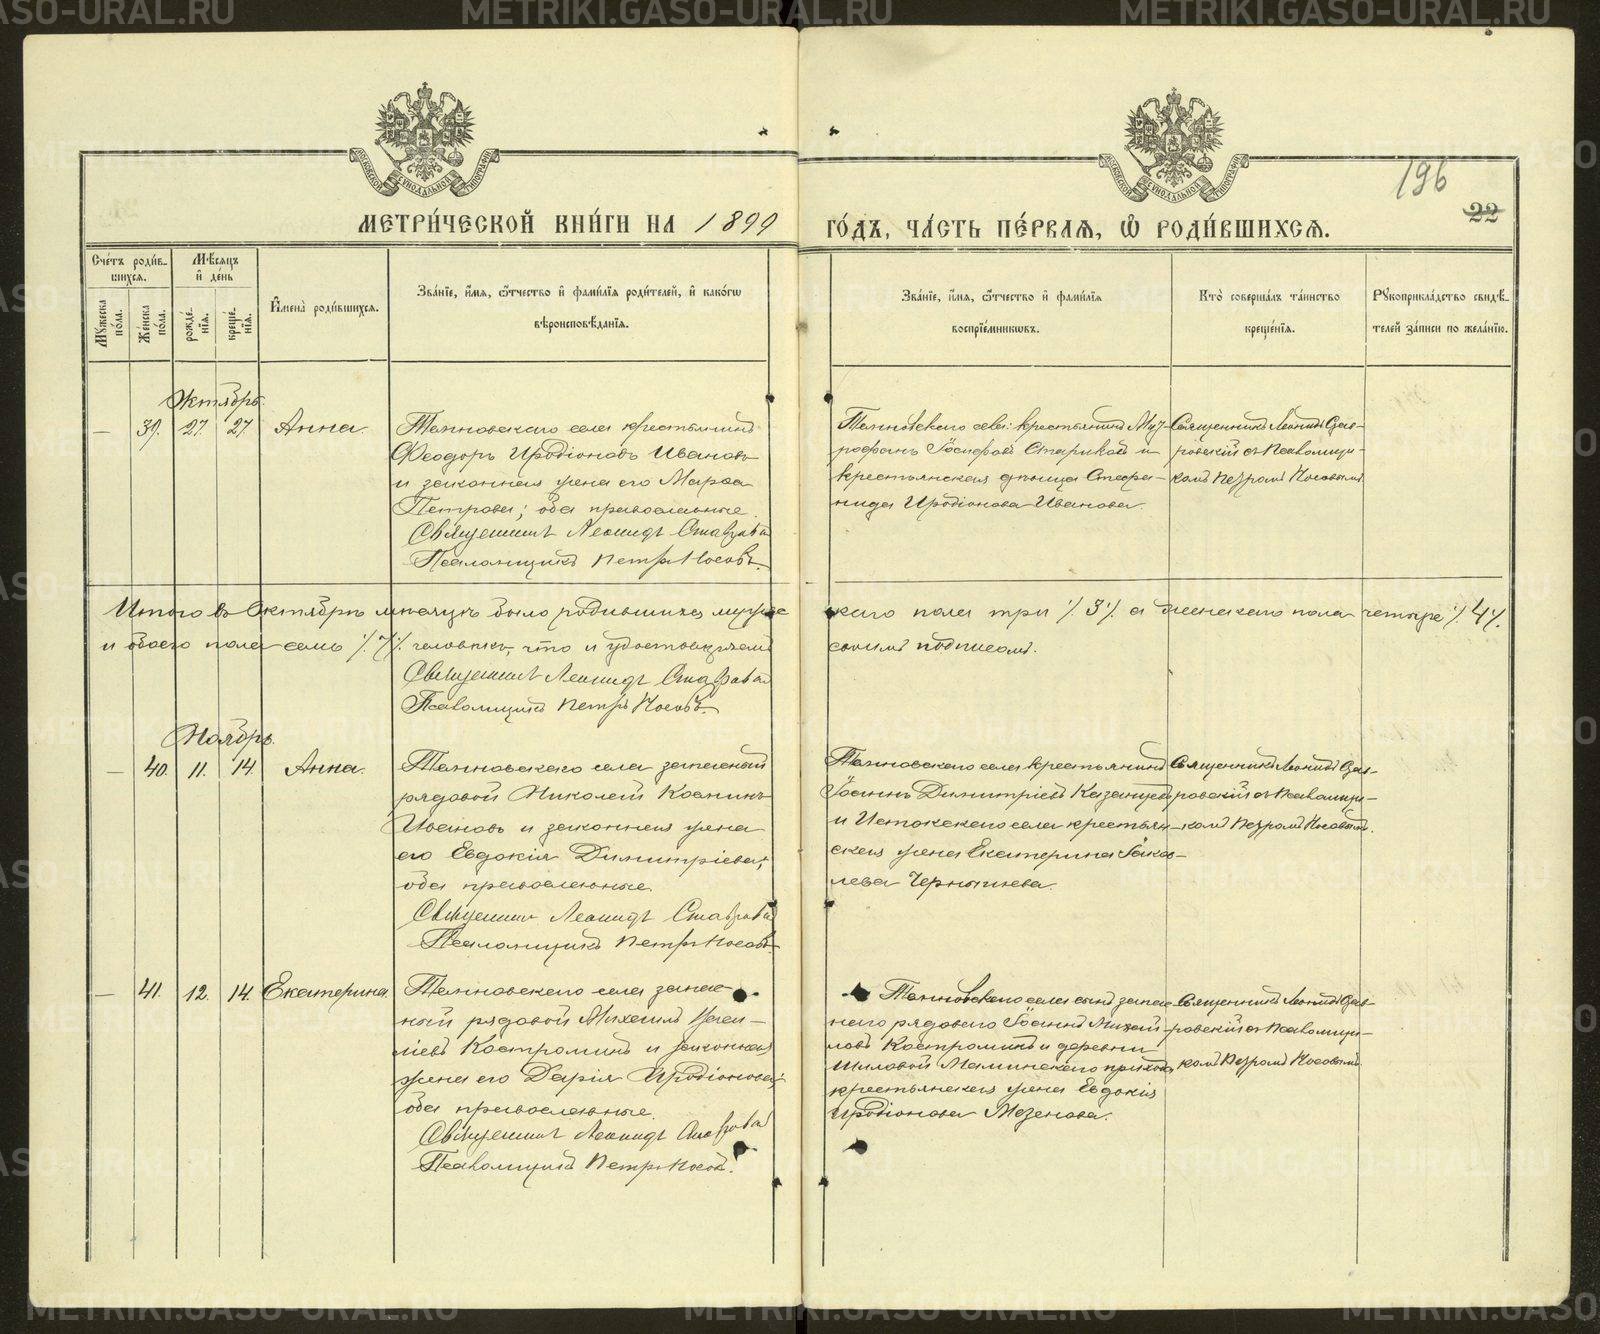 METRIKI.GASO-URAL.RU
МОСКОВСКОЙ СѴНОДАЛЬНОЙ ТИПОГРАФІИ
МОСКОВСКОЙ СѴНОДАЛЬНОЙ ТИПОГРАФІИ
196
22
МЕТРИ́ЧЕСКОЙ КНИ́ГИ НА 1899
ГО́ДЪ, ЧА́СТЬ ПЕ́РВАЯ, Ѡ҆ РОДИ́ВШИХСЯ.
Сче́тъ роди́в-
шихся.
Мꙋ́жеска по́ла.
Же́нска по́ла.
Мѣ́сяцъ
и҆ де́нь
рожде́нїя.
креще́нїя.
И҆мена̀ роди́вшихся.
Зва́нїе, и҆́мя, ѻ҆́тчество и҆ фами́лїя роди́телей, и҆ како́гѡ
вѣроисповѣ́данїя.
Зва́нїе, и҆́мя, ѻ҆́тчество и҆ фами́лїя
воспрїе́мникѡвъ.
Кто̀ соверша́лъ та́инство
креще́нїя.
Рꙋкоприкла́дство свидѣ́-
телей за́писи по жела́нїю.
Октябрь.
— 39. 27. 27. Анна.
село крестьянинъ
Феодоръ Иродіоновъ Ивановъ
и законная жена его Марѳа
Петрова; оба православные.
Священникъ Леонидъ Ставровскій
Псаломщикъ Петръ Носовъ.
села крестьянинъ Мит-
рофанъ Іосифовъ Стариковъ и
крестьянская дѣвица Стефа-
нида Иродіонова Иванова.
Священникъ Леонидъ Став-
ровскій съ псаломщи-
комъ Петромъ Носовымъ
Итого въ Октябрѣ мѣсяцѣ было родившихся мужес
каго пола три ./. 3 ./. а женскаго пола четыре ./. 4 ./.
и обоего пола семь ./. 7 ./. человѣкъ, что и удостовѣряемъ
своимъ подписомъ.
Священникъ Леонидъ Ставровскій
Псаломщикъ Петръ Носовъ.
Ноябрь.
— 40. 11. 14. Анна.
села запасный
рядовой Николай Косминъ
Ивановъ и законная жена
его Евдокія Димитріева;
оба православные.
Священник Леонидъ Ставровскій
Псаломщикъ Петръ Носовъ
села крестьянинъ
Іоаннъ Димитріевъ Казанцевъ
и Истокскаго села крестьян-
ская жена Екатерина Іаков-
лева Чернышева.
Священникъ Леонидъ Став-
ровскій съ псаломщи-
комъ Петромъ Носовымъ.
— 41. 12. 14. Екатерина.
села запас-
ный рядовой Михаилъ Васи-
ліевъ Костроминъ и законная
жена его Дарія Иродіонова;
оба православные.
Священникъ Леонидъ Ставровскій
Псаломщикъ Петръ Носовъ.
села сынъ запас-
наго рядоваго Іоаннъ Михаи-
ловъ Костроминъ и деревни
Шиловой Маминскаго прихода
крестьянская жена Евдокія
Иродіонова Мезенова.
Священникъ Леонидъ Став-
ровскій съ псаломщи-
комъ Петромъ Носовымъ.